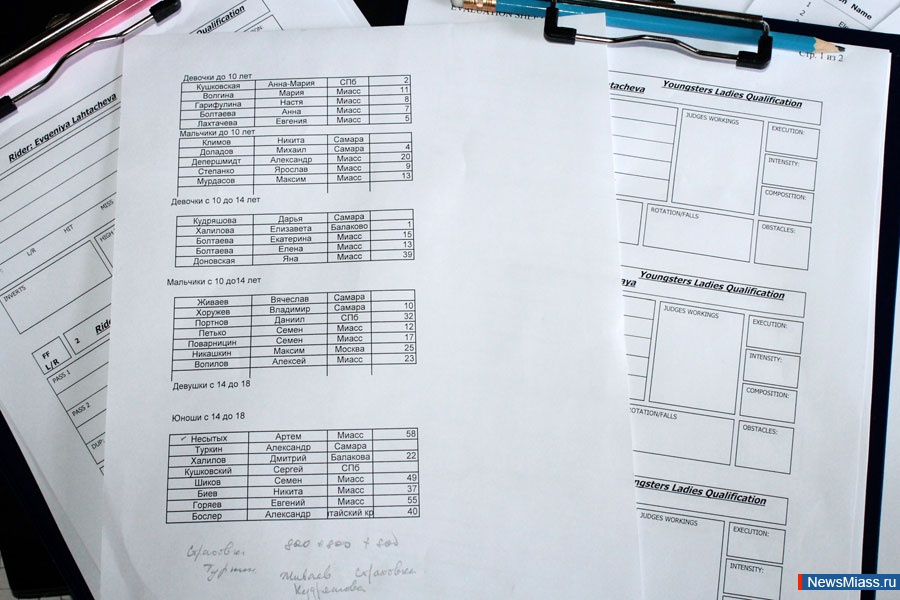 Девочки до 10 лет
Кушковская Анна-Мария СПб 2
Волгина Мария Миасс 11
Гарифулина Настя Миасс 8
Болтаева Анна Миасс 7
Лахтачева Евгения Миасс 5
Мальчики до 10 лет
Климов Никита Самара
Доладов Михаил Самара 4
Депершмидт Александр Миасс 20
Степанко Ярослав Миасс 9
Мурдасов Максим Миасс 13
Девочки с 10 до 14 лет
Кудряшова Дарья Самара
Халилова Елизавета Балаково 1
Болтаева Екатерина Миасс 15
Болтаева Елена Миасс 13
Доновская Яна Миасс 39
Мальчики с 10 до14 лет
Живаев Вячеслав Самара
Хоружев Владимир Самара 10
Портнов Даниил СПб 32
Петько Семен Миасс 12
Поварницин Семен Миасс 17
Никашкин Максим Москва 25
Вопилов Алексей Миасс 23
Девушки с 14 до 18
Юноши с 14 до 18
Несытых Артем Миасс 58
Туркин Александр Самара
Халилов Дмитрий Балакова 22
Кушковский Сергей СПб
Шиков Семен Миасс 49
Биев Никита Миасс 37
Горяев Евгений Миасс 55
Бослер Александр тайский кр 40
800 + 800 + 800
Живаев Страховка
Rider: Evgeniya Lahtacheva
Qualification
L/R HIT MISS
INVERTS HIGH
FF L/R 2 Ride
PASS 1
PASS 2
Name
Стр. 1 из 2
tacheva Youngsters Ladies Qualification
JUDGES WORKINGS
EXECUTION:
INTENSITY:
COMPOSITION:
ROTATION/FALLS
OBSTACLES:
Youngsters Ladies Qualification
JUDGES WORKINGS
EXECUTION:
INTENSITY:
COMPOSITION:
ROTATION/FALLS
OBSTACLES:
ngsters Ladies Qualification
JUDGES WORKINGS
EXECUTION:
INTENSITY:
NewsMiass.ru